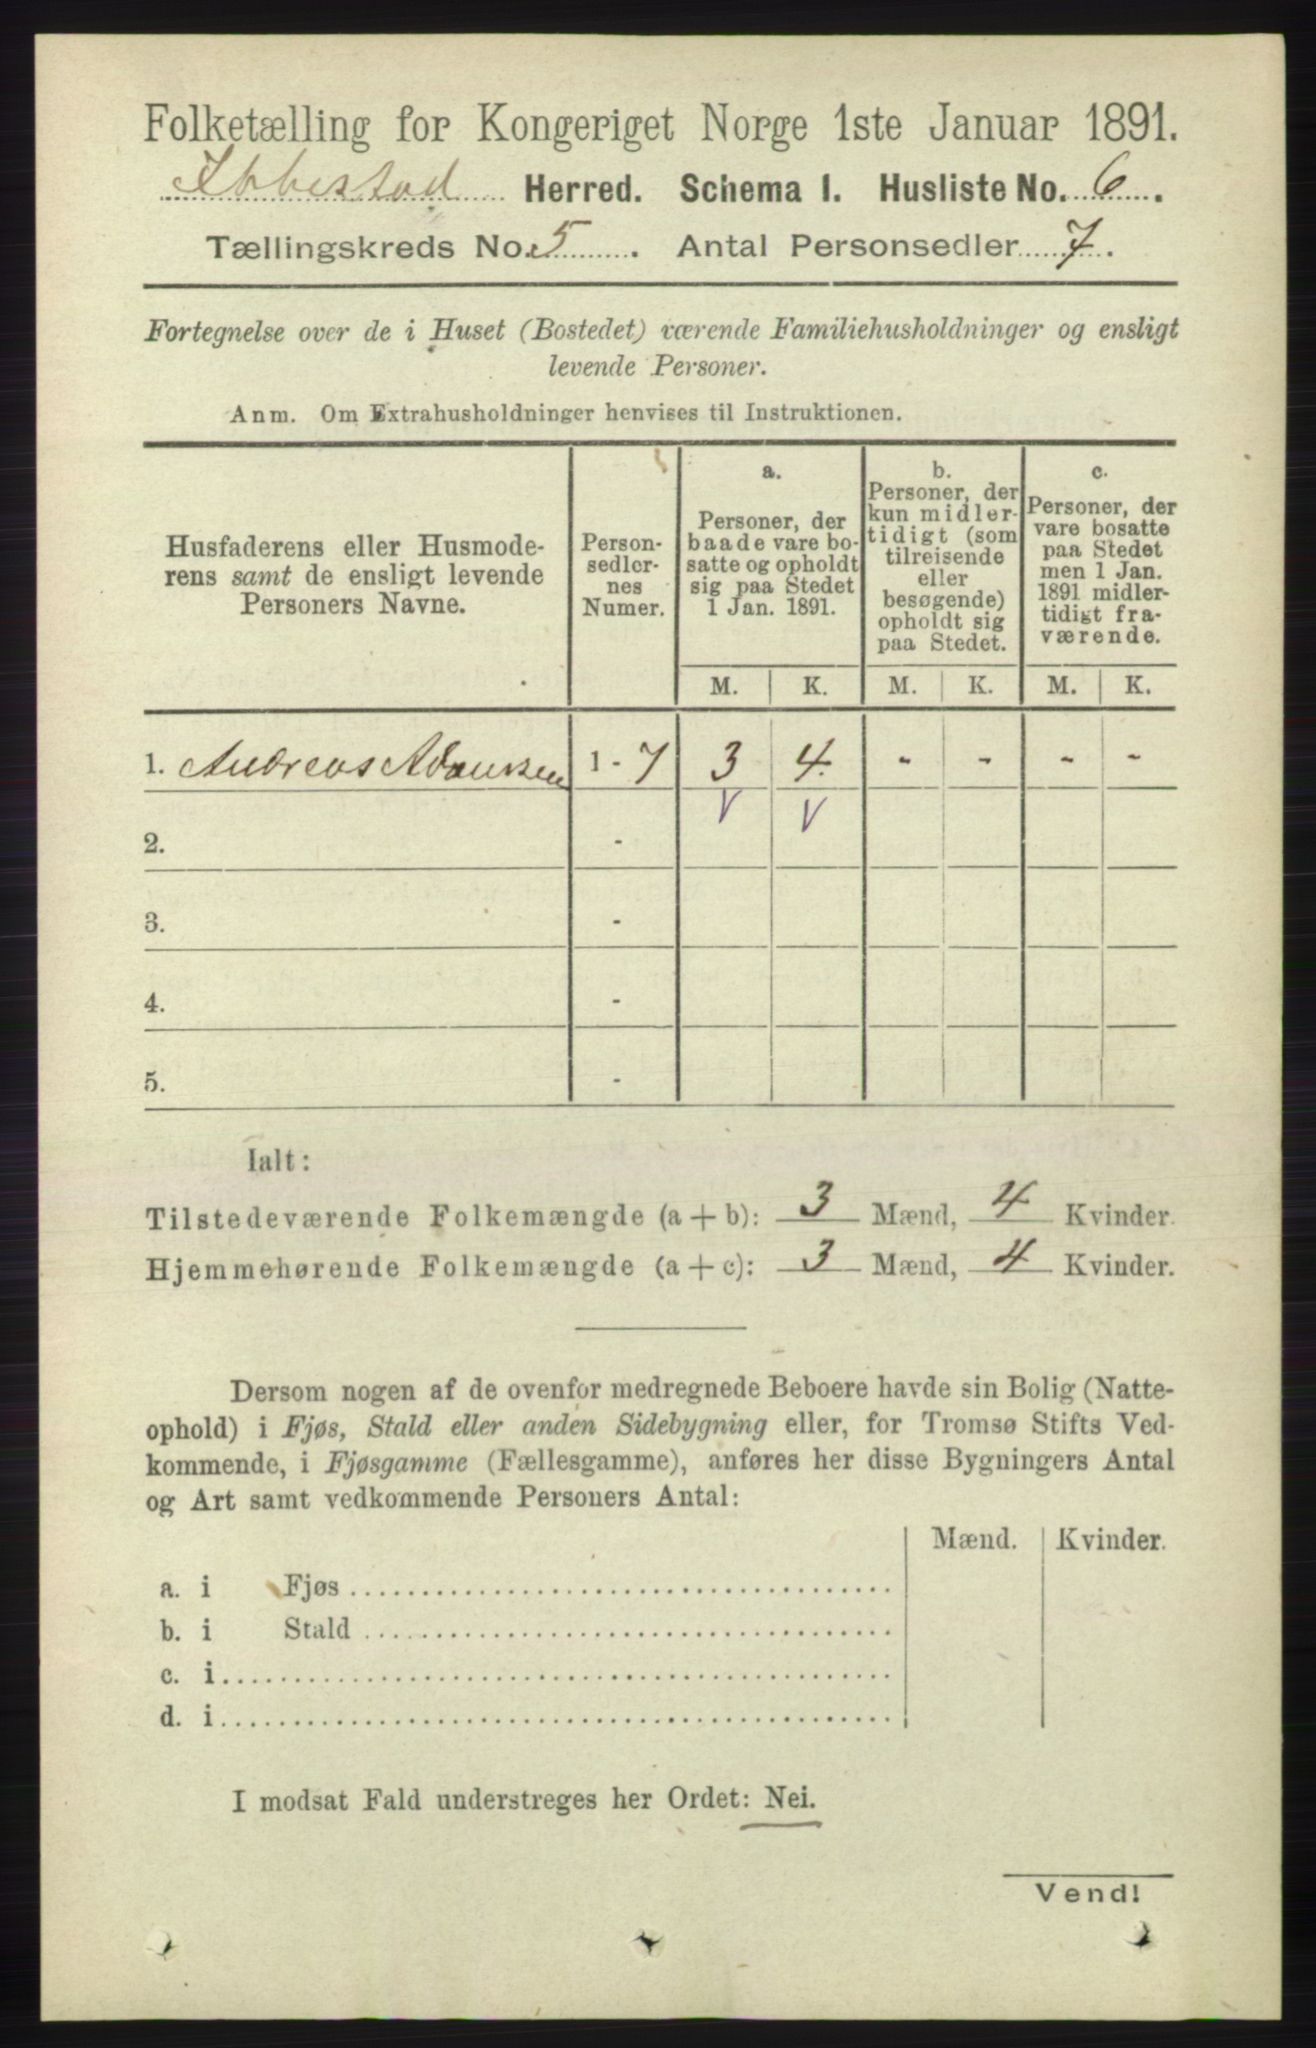 Folketælling for Kongeriget Norge 1ste Januar 1891.
Ibbestad Herred. Schema 1. Husliste No. 6.
Tællingskreds No. 5. Antal Personsedler 7.
Fortegnelse over de i Huset (Bostedet) værende Familiehusholdninger og ensligt
levende Personer.
Anm. Om Extrahusholdninger henvises til Instruktionen.
Husfaderens eller Husmode-
rens samt de ensligt levende
Personers Navne.
Person-
sedler-
nes
Numer.
a.
Personer, der
baade vare bo-
satte og opholdt
sig paa Stedet
1 Jan. 1891.
b.
Personer, der
kun midler-
tidigt (som
tilreisende
eller
besøgende)
opholdt sig
paa Stedet.
c.
Personer, der
vare bosatte
paa Stedet
men 1 Jan.
1891 midler-
tidigt fra-
værende.
M. K. M. K. M. K.
1. Andreas Adamsen 1 - 7 3 4. - - - -
2. - V V
3. -
4. -
5. -
Ialt:
Tilstedeværende Folkemængde (a + b): 3 Mænd, 4 Kvinder.
Hjemmehørende Folkemængde (a + c): 3 Mænd, 4 Kvinder.
Dersom nogen af de ovenfor medregnede Beboere havde sin Bolig (Natte-
ophold) i Fjøs, Stald eller anden Sidebygning eller, for Tromsø Stifts Ved-
kommende, i Fjøsgamme (Fællesgamme), anføres her disse Bygningers Antal
og Art samt vedkommende Personers Antal:
Mænd. Kvinder.
a. i Fjøs
b. i Stald
c. i
d. i
I modsat Fald understreges her Ordet: Nei.
Vend!